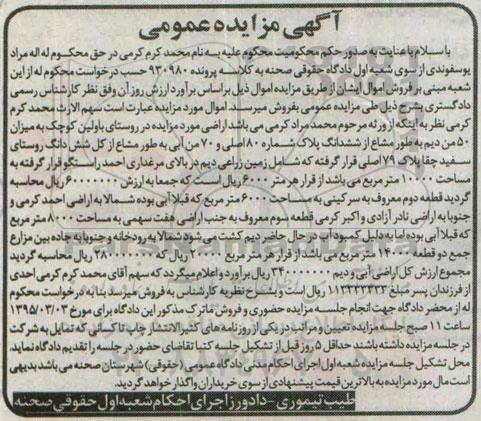 آگهی مزایده عمومی
باسلام باعنایت به صدور حکم محکومیت محکوم علیه به نام محمد کرم کرمی در حق محکوم له اله مراد
یوسفوندی از سوی شعبه اول دادگاه حقوقی صحنه به کلاسه پرونده ۹۳۰۹۸۰ حسب درخواست محکوم له از این
شعبه مبنی بر فروش اموال ایشان از طریق مزایده اموال ذیل براساس برآورد ارزش روز آن وفق نظر کارشناس رسمی
دادگستری بشرح ذیل طی مزایده عمومی بفروش میرسد. اموال مورد مزایده عبارت است سهم الارث محمد کرم
کرمی نظر به اینکه از ورثه مرحوم محمد مراد کرمی می باشد اراضی مورد مزایده در روستای باولین کوچک به میزان
۵۰ من دیم به طور مشاع از ششدانگ پلاک شماره ۸۰ اصلی و ۷۰ من آبی به طور مشاع از کل شش دانگ روستای
سفید چقا پلاک ۷۹ اصلی قرار گرفته که شامل زمین زراعی دیم در بالای مرغداری احمد راستگو قرار گرفته به
مساحت ۱۰۰۰۰ متر مربع می باشد از قرار هر متر ۶۰۰۰ ریال است که جمعا به ارزش ۶۰۰۰۰۰۰۰ ریال محاسبه
گردید قطعه دوم معروف به سر کینی به مساحت ۶۰۰۰ متر مربع که قبلا آبی بوده شمالا به اراضی احمد کرمی و
جنوبا به اراضی نادر آزادی و اکبر کرمی قطعه سوم معروف به جنب اراضی هفت سهمی به مساحت ۸۰۰۰ متر مربع
که قبلا آبی بوده اما به دلیل کمبود آب در حال حاضر دیم کشت می شود شمالا به رودخانه و جنوبا به جاده بین مزارع
جمع دو قطعه ۱۴۰۰۰ متر مربع می باشد از قرار هر متر مربع ۲۰۰۰۰ ریال که ۲۸۰۰۰۰۰۰۰ ریال محاسبه گردید
مجموع ارزش کل اراضی آبی و دیم ۳۴۰۰۰۰۰۰۰ ریال برآورد و اعلام میگردد که سهم آقای محمد کرم کرمی احدی
از فرزندان پسر مبلغ ۱۱۳۳۳۳۴۳۳ ریال است و بشرح نظریه کارشناس به فروش میرسد بنا به درخواست محکوم
له از محضر دادگاه جهت انجام جلسه مزایده حضوری و فروش ماترک مذکور این دادگاه برای مورخ ۱۳۹۵/۰۳/۰۳
ساعت ۱۱ صبح جلسه مزایده تعیین و مراتب در یکی از روزنامه های کثیرالانتشار چاپ تا کسانی که تمایل به شرکت
در جلسه مزایده داشته باشند حداقل ۵ روز قبل از تشکیل جلسه کتبا تقاضای حضور در جلسه را تقدیم دادگاه نماید.
محل تشکیل جلسه مزایده شعبه اول اجرای احکام مدنی دادگاه عمومی (حقوقی) شهرستان صحنه می باشد بدیهی
است مال مورد مزایده به بالاترین قیمت پیشنهادی از سوی خریداران واگذار خواهد گردید.
طیب تیموری - دادورز اجرای احکام شعبه اول حقوقی صحنه